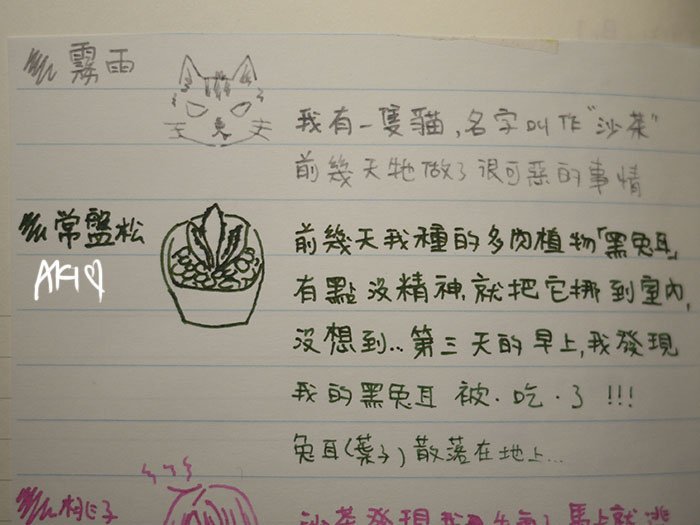 霧雨
我有一隻貓,名字叫作"沙茶"
前幾天牠做了很可惡的事情
常盤松
AKI♡
前幾天我種的多肉植物「黑兔耳」
有點沒精神,就把它挪到室內,
沒想到..第三天的早上,我發現
我的黑兔耳 被·吃·了!!!
兔耳(葉子)散落在地上...
桃子
沙茶發現我
馬上就逃